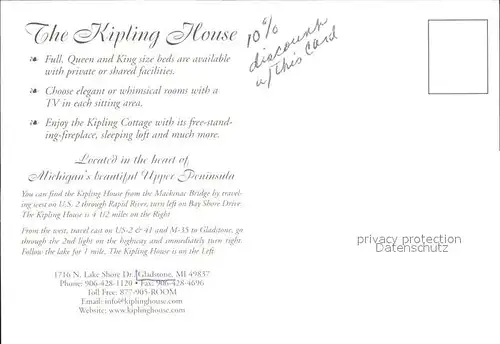 The Kipling House
❧ Full, Queen and King size beds are available
with private or shared facilities.
❧ Choose elegant or whimsical rooms with a
TV in each sitting area.
❧ Enjoy the Kipling Cottage with its free-stand-
ing-fireplace, sleeping loft and much more.
Located in the heart of
Michigan's beautiful Upper Peninsula
You can find the Kipling House from the Mackenac Bridge by travel-
ing west on U.S. 2 through Rapid River, turn left on Bay Shore Drive.
The Kipling House is 4 1/2 miles on the Right
From the west, travel east on US-2 & 41 and M-35 to Gladstone, go
through the 2nd light on the highway and immediately turn right.
Follow the lake for 1 mile. The Kipling House is on the Left.
1716 N. Lake Shore Dr. Gladstone, MI 49837
Phone: 906-428-1120 • Fax: 906-428-4696
Toll Free: 877-905-ROOM
Email: info@kiplinghouse.com
Website: www.kiplinghouse.com
10%
discount
w/this card
privacy protection
Datenschutz